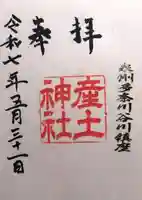 奉拝
泉州多奈川谷川鎮座
産土神社
令和七年五月三十一日